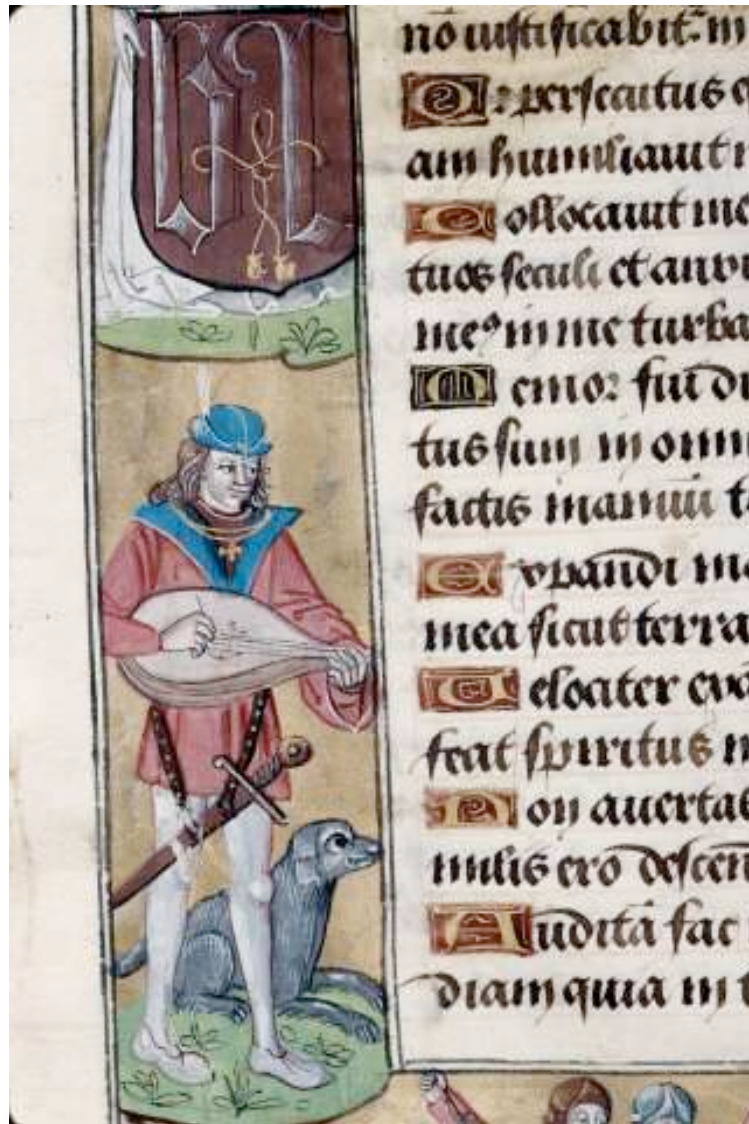 nō iustificabit᷑ in
Q: persecutus e
am humiliauit
Collocauit me
tuos seculi et anxi
meꝰ in me turba
Memor fui di
tus sum in omni
factis manuū t
Expandi ma
mea sicut terra
Velociter exa
fecit spiritus m
Non auertas
milis ero descen
Auditā fac
diam quia in t